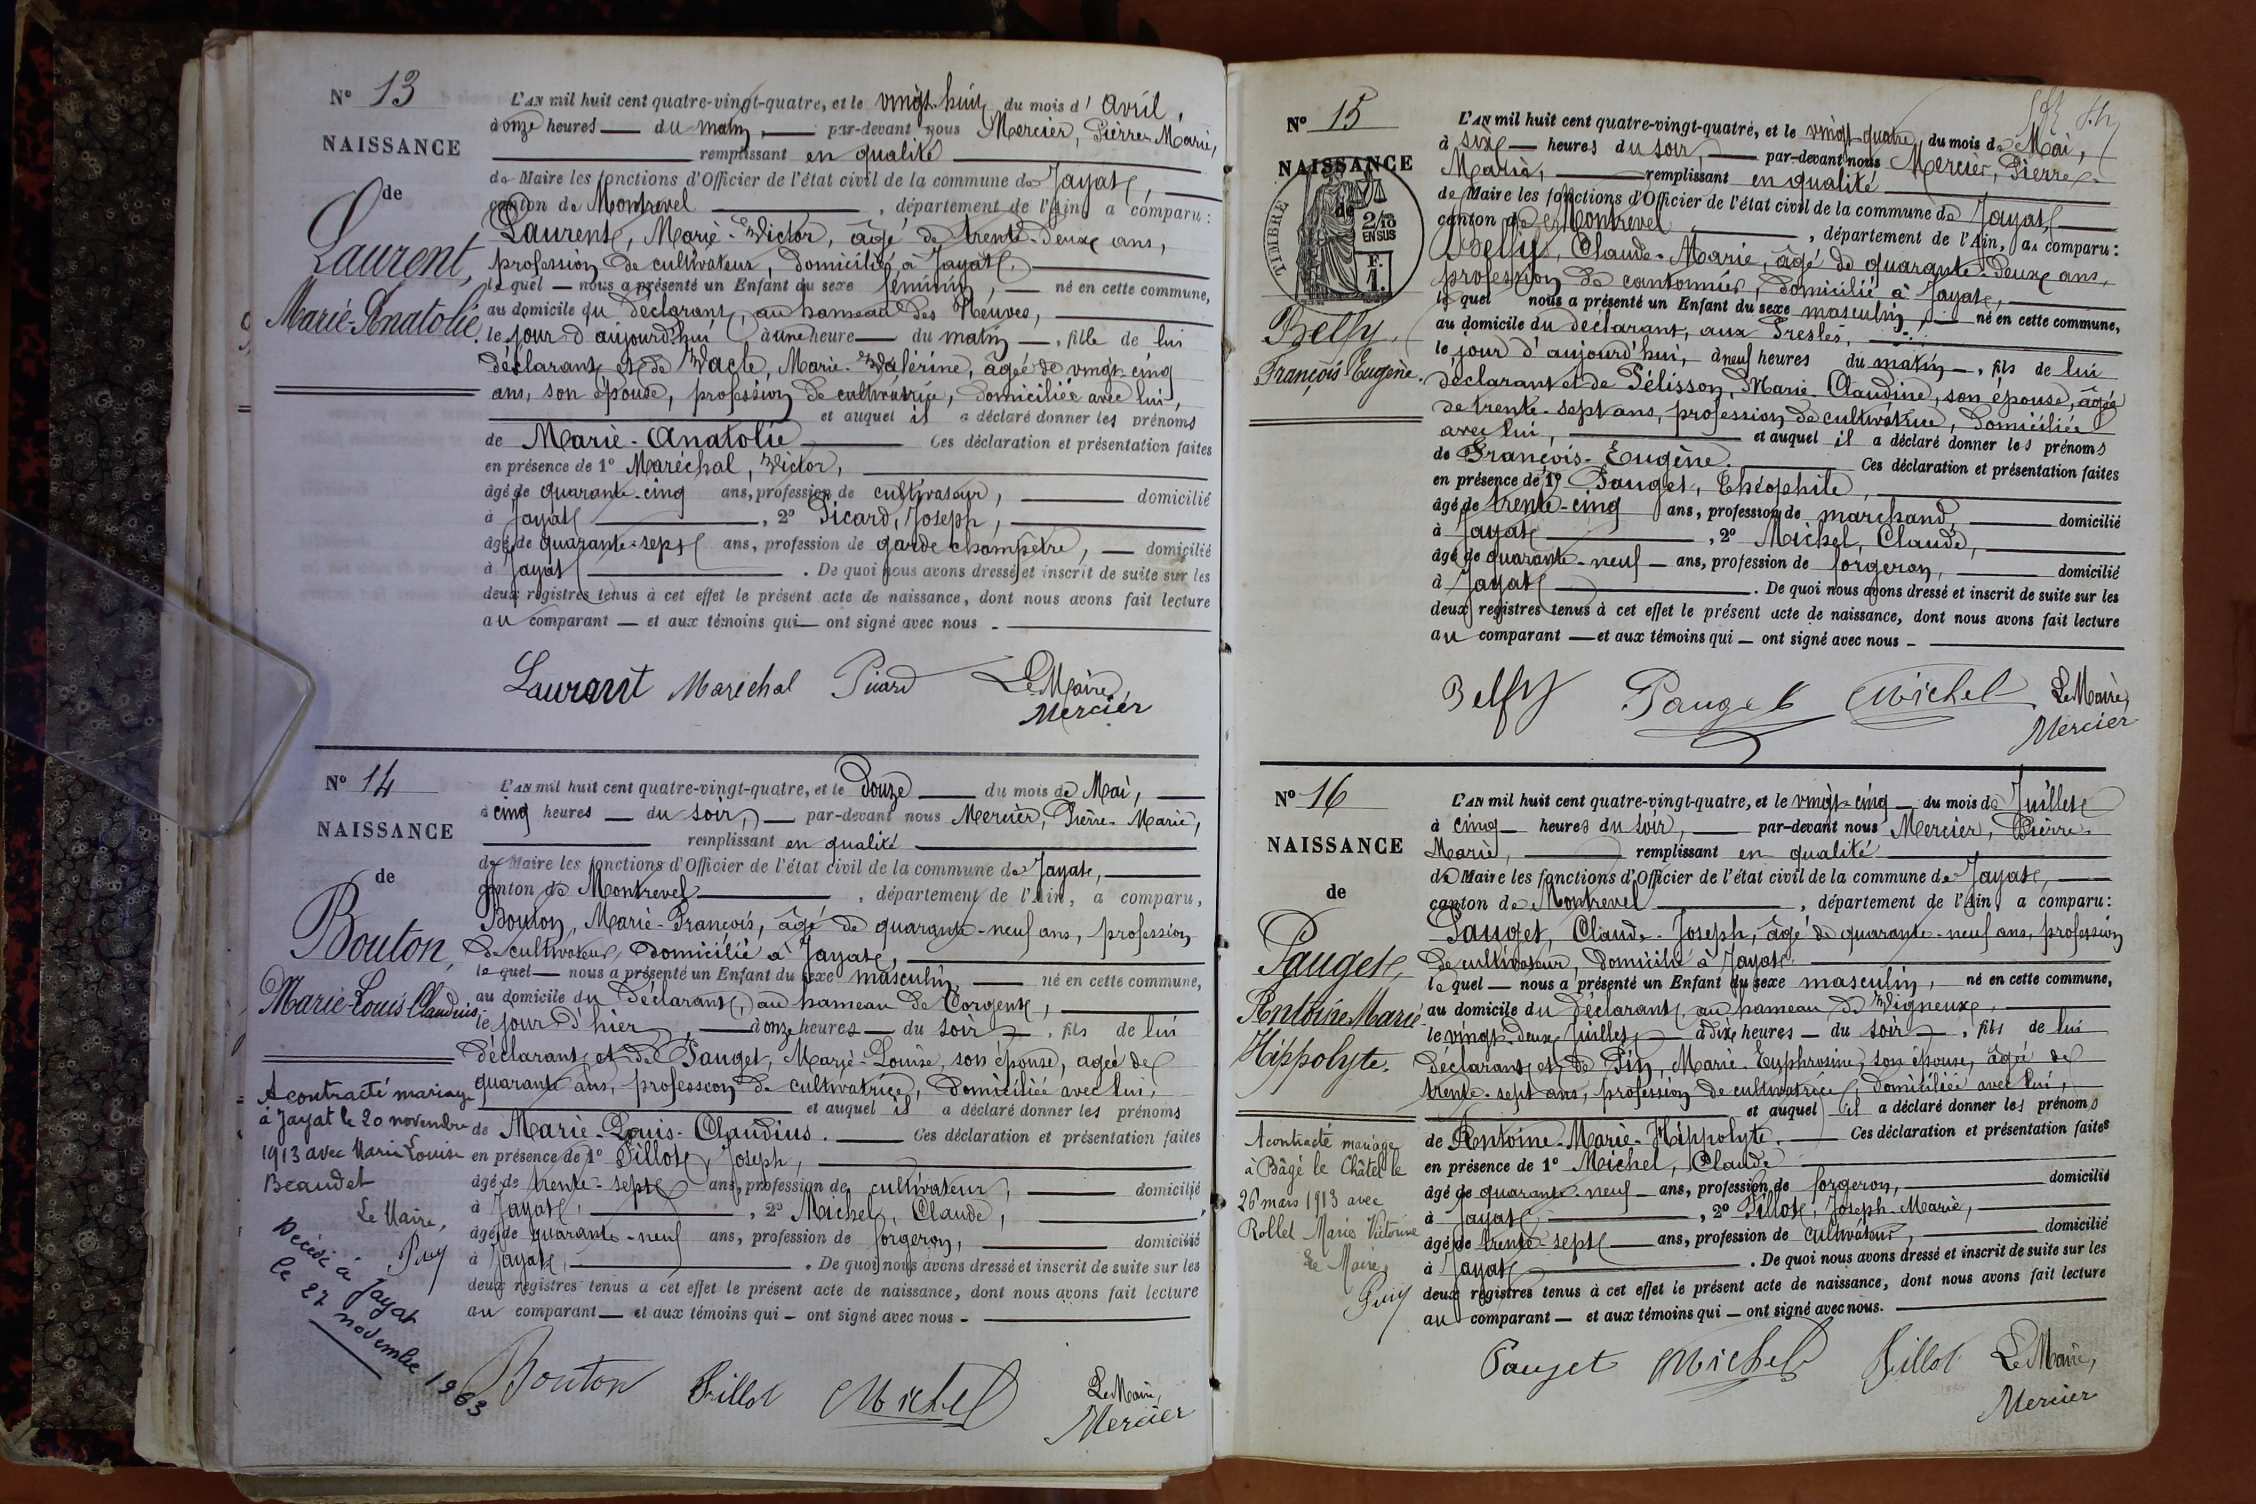 N° 13
NAISSANCE
de
Laurent,
Marie-Anatolie.
L'AN mil huit cent quatre-vingt-quatre, et le vingt-huit du mois d' Avril,
à onze heures — du matin, — par-devant nous Mercier, Pierre Marie,
remplissant en qualité
de Maire les fonctions d'Officier de l'état civil de la commune de Jayat,
canton de Montrevel , département de l'Ain, a comparu:
Laurent, Marie-Victor, âgé de trente-deux ans,
profession de cultivateur, domicilié à Jayat.
le quel — nous a présenté un Enfant du sexe féminin, — né en cette commune,
au domicile du déclarant, au hameau des Neuves,
le jour d'aujourd'hui à une heure — du matin —, fille de lui
déclarant et de Vacle, Marie-Valérine, âgée de vingt-cinq
ans, son épouse, profession de cultivatrice, domiciliée avec lui,
et auquel il a déclaré donner les prénoms
de Marie-Anatolie Ces déclaration et présentation faites
en présence de 1° Maréchal, Victor,
âgé de quarante-cinq ans, profession de cultivateur, domicilié
à Jayat , 2° Picard, Joseph,
âgé de quarante-sept ans, profession de garde champêtre, — domicilié
à Jayat . De quoi nous avons dressé et inscrit de suite sur les
deux registres tenus à cet effet le présent acte de naissance, dont nous avons fait lecture
au comparant — et aux témoins qui — ont signé avec nous -
Laurent Maréchal Picard Le Maire,
Mercier
N° 14
NAISSANCE
de
Bouton,
Marie-Louis Claudius,
L'AN mil huit cent quatre-vingt-quatre, et le douze du mois de Mai,
à cinq heures — du soir, — par-devant nous Mercier, Pierre-Marie,
remplissant en qualité
de Maire les fonctions d'Officier de l'état civil de la commune de Jayat,
canton de Montrevel , département de l'Ain, a comparu,
Bouton, Marie-François, âgé de quarante-neuf ans, profession
de cultivateur, domicilié à Jayat,
le quel — nous a présenté un Enfant du sexe masculin, — né en cette commune,
au domicile du déclarant, au hameau de Corgent,
le jour d'hier, — à onze heures — du soir —, fils de lui
déclarant et de Pauget, Marie-Louise, son épouse, agée de
quarante ans, profession de cultivatrice, domiciliée avec lui,
et auquel il a déclaré donner les prénoms
de Marie-Louis-Claudius. Ces déclaration et présentation faites
en présence de 1° Pillot, Joseph,
âgé de trente-sept ans, profession de cultivateur, domicilié
à Jayat, , 2° Michel, Claude,
âgé de quarante-neuf ans, profession de forgeron, domicilié
à Jayat, . De quoi nous avons dressé et inscrit de suite sur les
deux registres tenus à cet effet le présent acte de naissance, dont nous avons fait lecture
au comparant — et aux témoins qui — ont signé avec nous -
A contracté mariage
à Jayat le 20 novembre
1913 avec Marie Louise
Beaudet
Le Maire,
Puy
Décédé à Jayat
le 27 novembre 1963
Bouton Pillot Michel Le Maire,
Mercier
N° 15
NAISSANCE
de
TIMBRE
2/10
EN SUS
F.
1.
Belfy.
François Eugène.
L'AN mil huit cent quatre-vingt-quatre, et le vingt-quatre du mois de Mai,
à six — heures du soir, — par-devant nous Mercier, Pierre
Marie, remplissant en qualité
de Maire les fonctions d'Officier de l'état civil de la commune de Jayat,
canton de Montrevel , département de l'Ain, a comparu:
Belfy, Claude-Marie, âgé de quarante-deux ans,
profession de cantonnier, domicilié à Jayat,
le quel nous a présenté un Enfant du sexe masculin, — né en cette commune,
au domicile du déclarant, aux Presles,
le jour d'aujourd'hui, à neuf heures du matin —, fils de lui
déclarant et de Pélisson, Marie-Claudine, son épouse, âgée
de trente-sept ans, profession de cultivatrice, domiciliée
avec lui, et auquel il a déclaré donner les prénoms
de François-Eugène. Ces déclaration et présentation faites
en présence de 1° Pauget, Théophile,
âgé de trente-cinq ans, profession de marchand, domicilié
à Jayat , 2° Michel, Claude,
âgé de quarante-neuf — ans, profession de forgeron, domicilié
à Jayat . De quoi nous avons dressé et inscrit de suite sur les
deux registres tenus à cet effet le présent acte de naissance, dont nous avons fait lecture
au comparant — et aux témoins qui — ont signé avec nous -
Belfy Pauget Michel Le Maire,
Mercier
N° 16
NAISSANCE
de
Pauget,
Antoine Marie
Hippolyte.
L'AN mil huit cent quatre-vingt-quatre, et le vingt-cinq — du mois de Juillet
à cinq — heures du soir, — par-devant nous Mercier, Pierre
Marie, remplissant en qualité
de Maire les fonctions d'Officier de l'état civil de la commune de Jayat,
canton de Montrevel , département de l'Ain a comparu:
Pauget, Claude-Joseph, âgé de quarante-neuf ans, profession
de cultivateur, domicilié à Jayat.
le quel — nous a présenté un Enfant du sexe masculin, né en cette commune,
au domicile du déclarant, au hameau de Vigneux,
le vingt-deux Juillet à dix heures — du soir —, fils de lui
déclarant et de Pin, Marie-Euphrosine, son épouse, âgé de
trente-sept ans, profession de cultivatrice, domiciliée avec lui,
et auquel il a déclaré donner les prénoms
de Antoine-Marie-Hippolyte. Ces déclaration et présentation faites
en présence de 1° Michel, Claude
âgé de quarante-neuf — ans, profession de forgeron, domicilié
à Jayat , 2° Pillot, Joseph-Marie,
âgé de trente-sept ans, profession de cultivateur, domicilié
à Jayat . De quoi nous avons dressé et inscrit de suite sur les
deux registres tenus à cet effet le présent acte de naissance, dont nous avons fait lecture
au comparant — et aux témoins qui — ont signé avec nous.
A contracté mariage
à Bâgé le Châtel le
26 mars 1913 avec
Rollet Marie Victorine
Le Maire,
Puy
Pauget Michel Pillot Le Maire,
Mercier